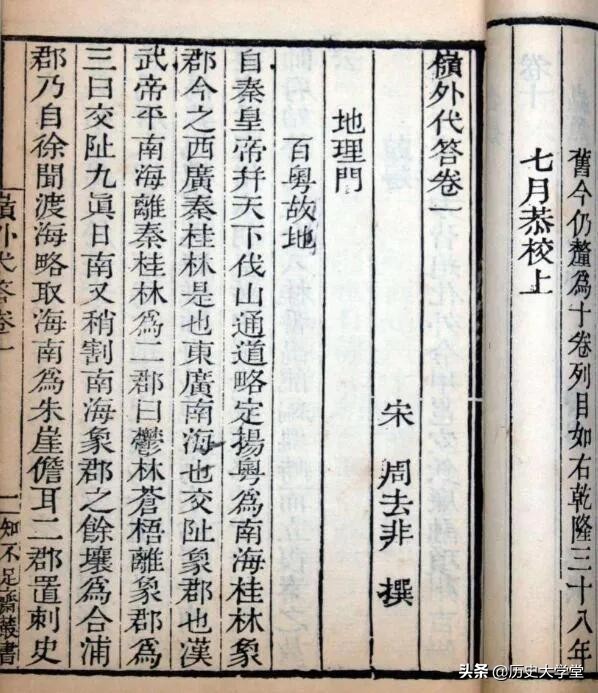 舊今仍釐為十卷列目如右乾隆三十八年
七月恭校上
嶺外代答卷一
宋 周去非 撰
地理門
百粵故地
自秦皇帝幷天下伐山通道略定揚粵為南海桂林象
郡今之西廣秦桂林是也東廣南海也交阯象郡也漢
武帝平南海離秦桂林為二郡曰鬱林蒼梧離象郡為
三曰交阯九眞日南又稍割南海象郡之餘壤為合浦
郡乃自徐聞渡海略取海南為朱崖儋耳二郡置刺史
嶺外代答卷一
一
知不足齋叢書
头条 @历史大学堂